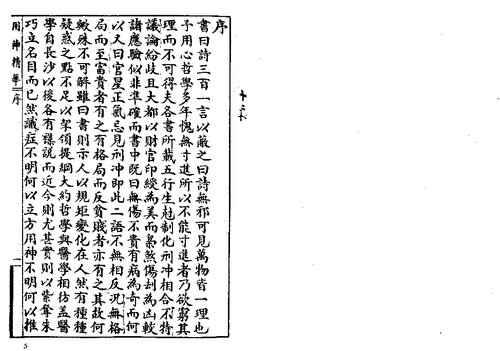 序
書曰詩三百一言以蔽之曰詩無邪可見萬物皆一理也
予用心哲學多年愧無寸進所以不能寸進者乃欲窮其
理而不可得夫各書所載五行生尅制化刑冲相合不待
議論紛歧且大都以財官印綬為美而梟煞傷刦為凶較
諸應驗似非準確而書中既曰無傷不貴有病為奇而何
以又曰官星正氣忌見刑冲即此二語不無相反況無格
局而至富貴者有之有格局而反貧賤者亦有之其故何
緻殊不可解雖曰書則示人以規矩變化在人然有種種
疑惑之點不足以挈領提綱大約哲學與醫學相彷盖醫
學自長沙以後各有穕說而近今則尤甚實則以紫奪朱
巧立名目而已然識症不明何以立方用神不明何以推
用神精華 序
一
5